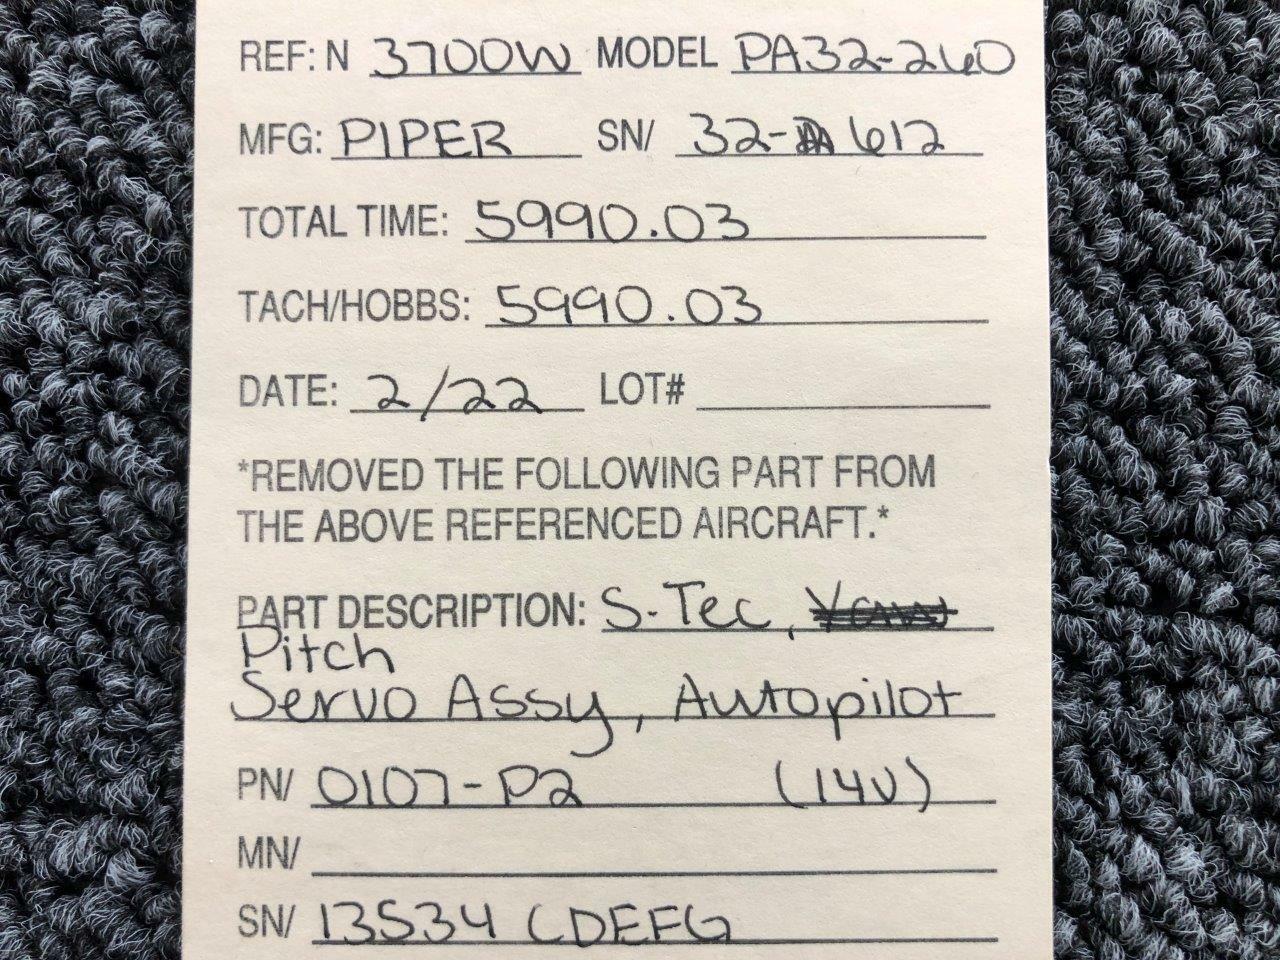 REF: N 3700W MODEL PA32-260
MFG: PIPER SN/ 32-612
TOTAL TIME: 5990.03
TACH/HOBBS: 5990.03
DATE: 2/22 LOT#
*REMOVED THE FOLLOWING PART FROM
THE ABOVE REFERENCED AIRCRAFT.*
PART DESCRIPTION: S-Tec, Yaw
Pitch
Servo Assy, Autopilot
PN/ 0107-P2 (14V)
MN/
SN/ 13534 CDEFG